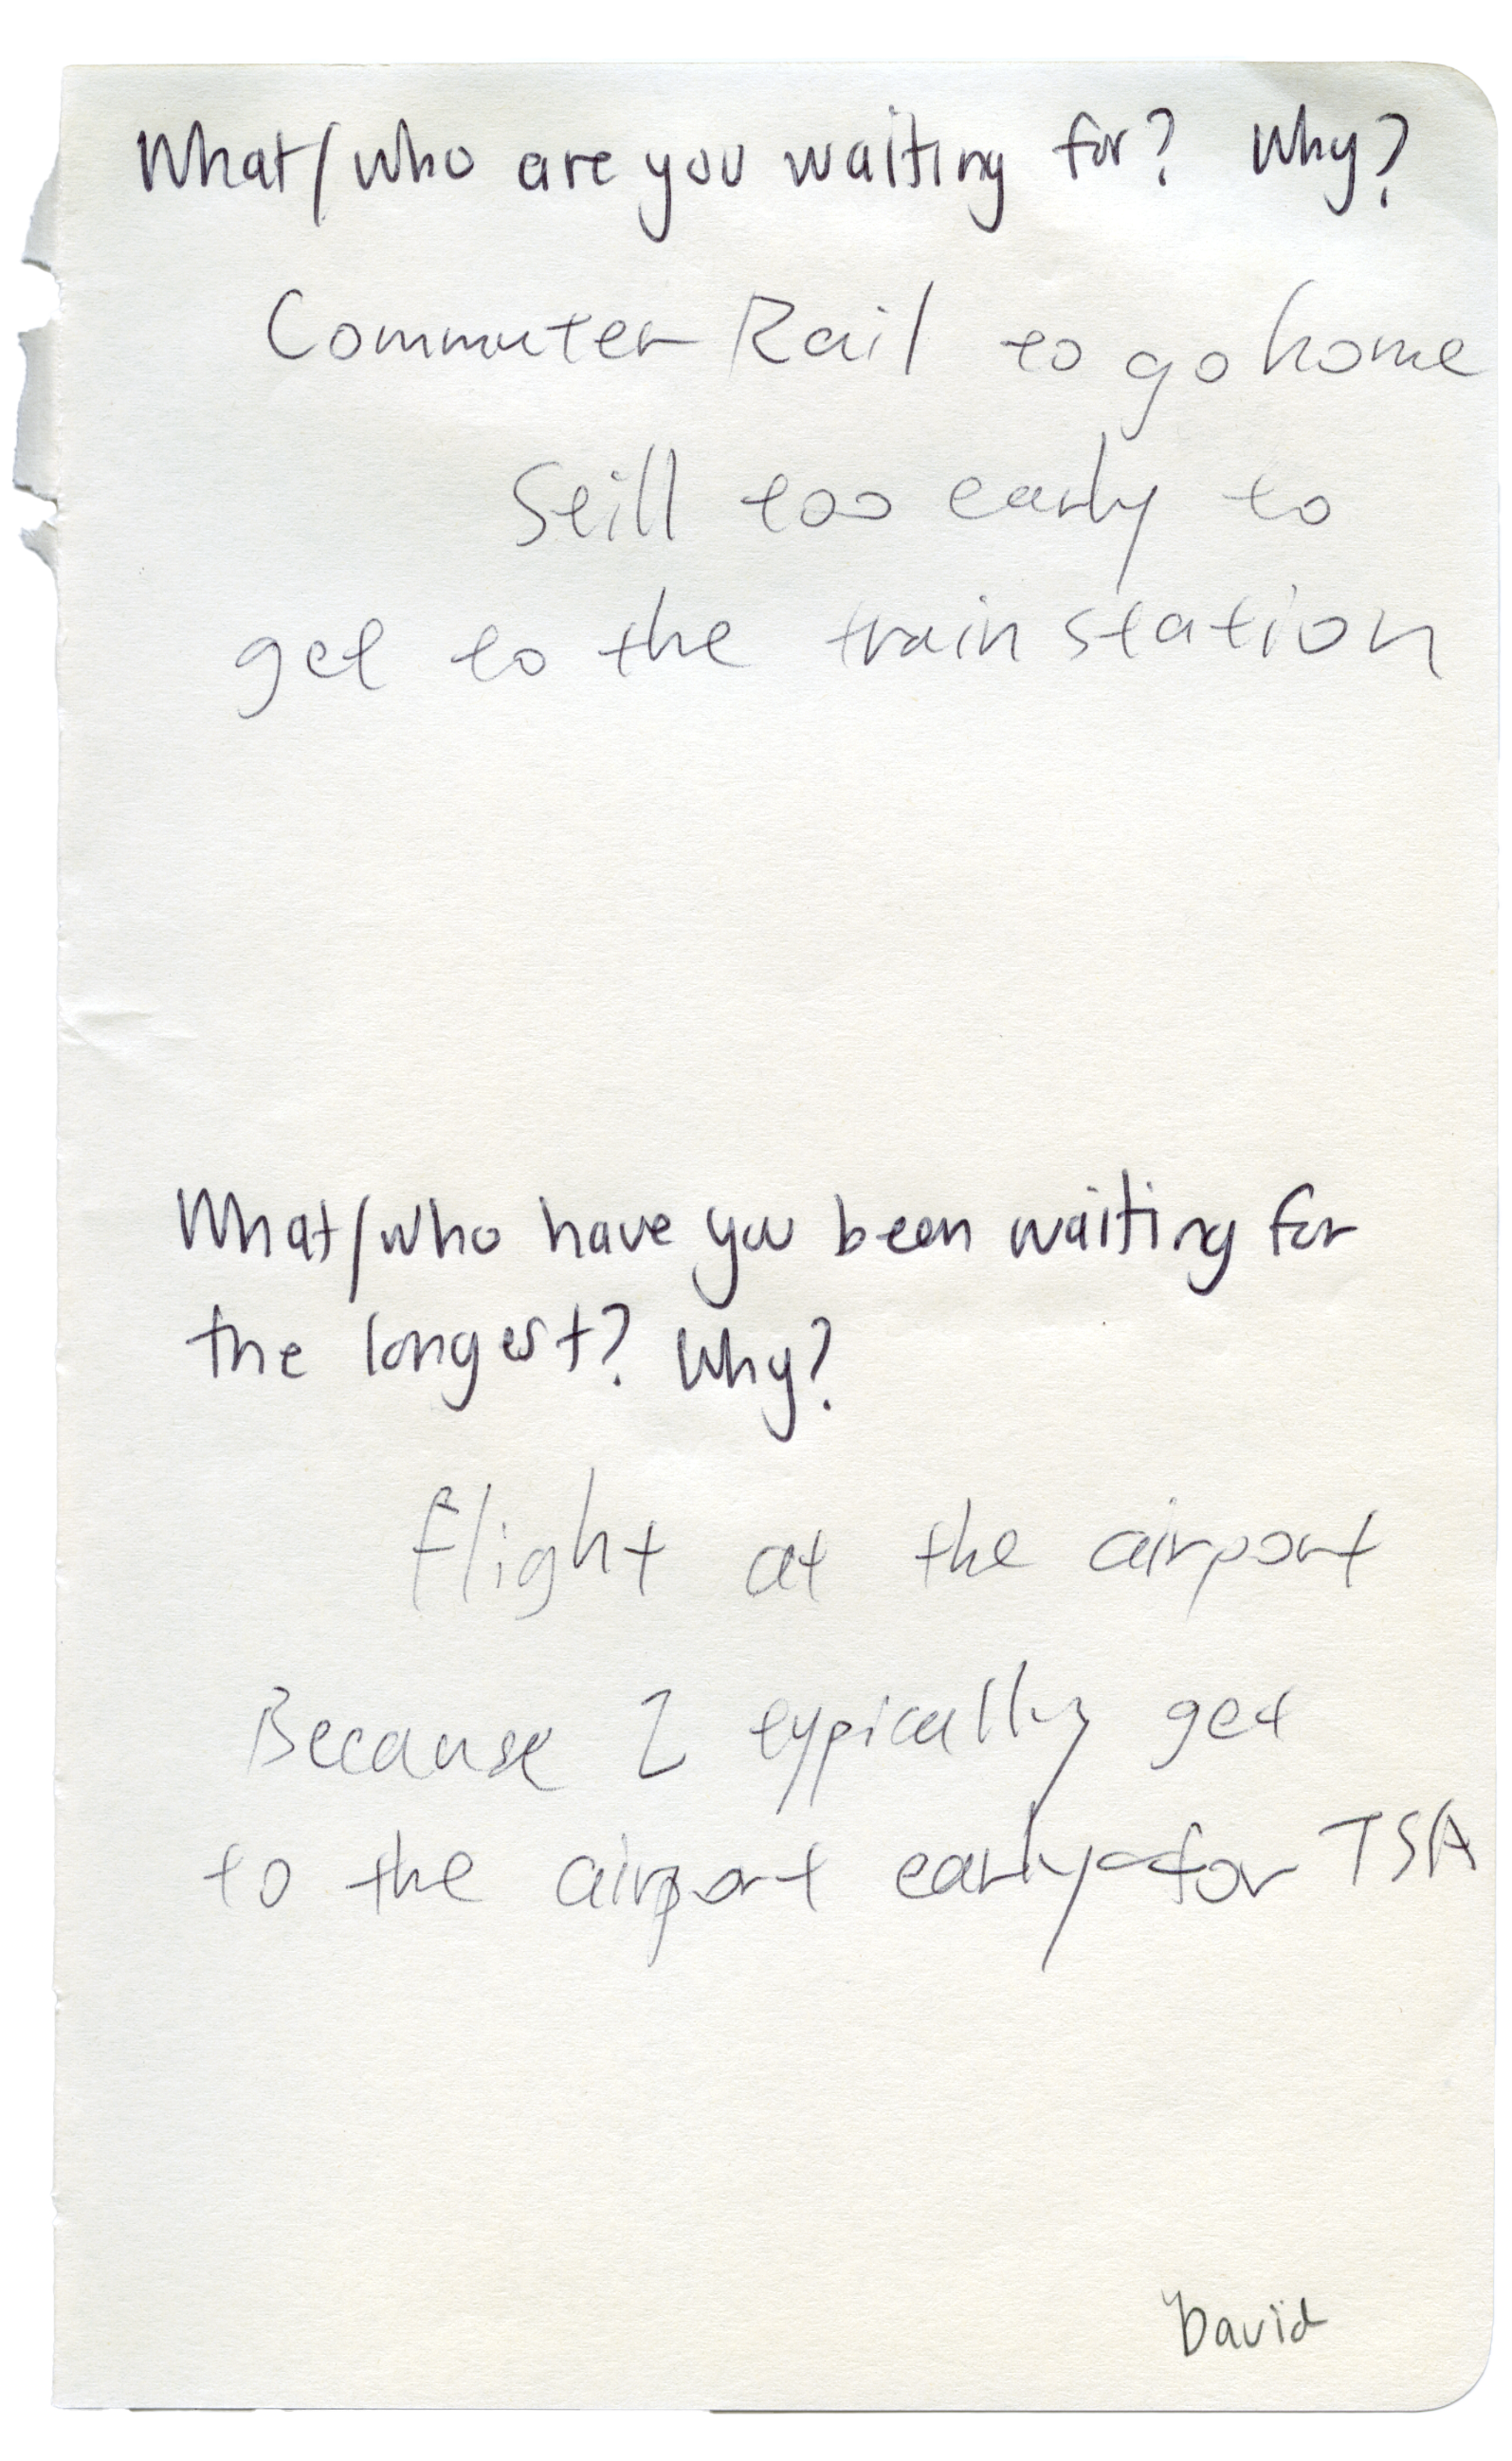 What/who are you waiting for? Why?
Commuter Rail to go home
Still too early to
get to the train station
What/who have you been waiting for
the longest? Why?
flight at the airport
Because I typically get
to the airport early for TSA
David